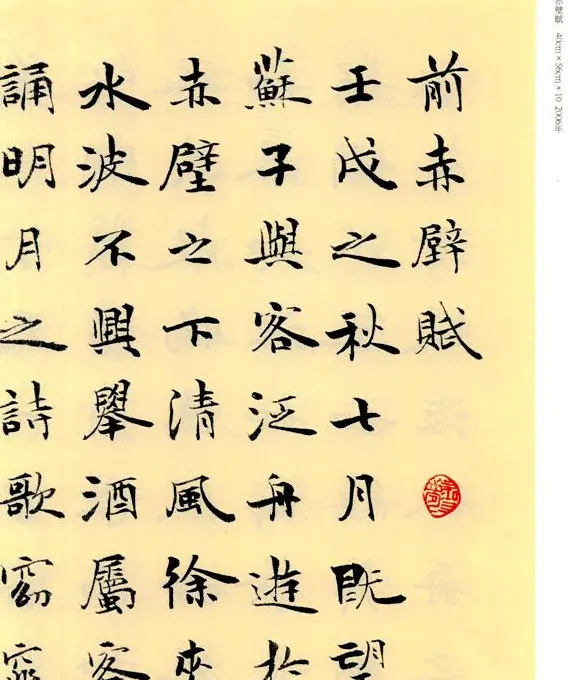 前赤壁賦
壬戌之秋七月既望
蘇子與客泛舟遊於
赤壁之下清風徐來
水波不興舉酒屬客
誦明月之詩歌窈窕
赤壁賦 40cm×56cm×10 2006年